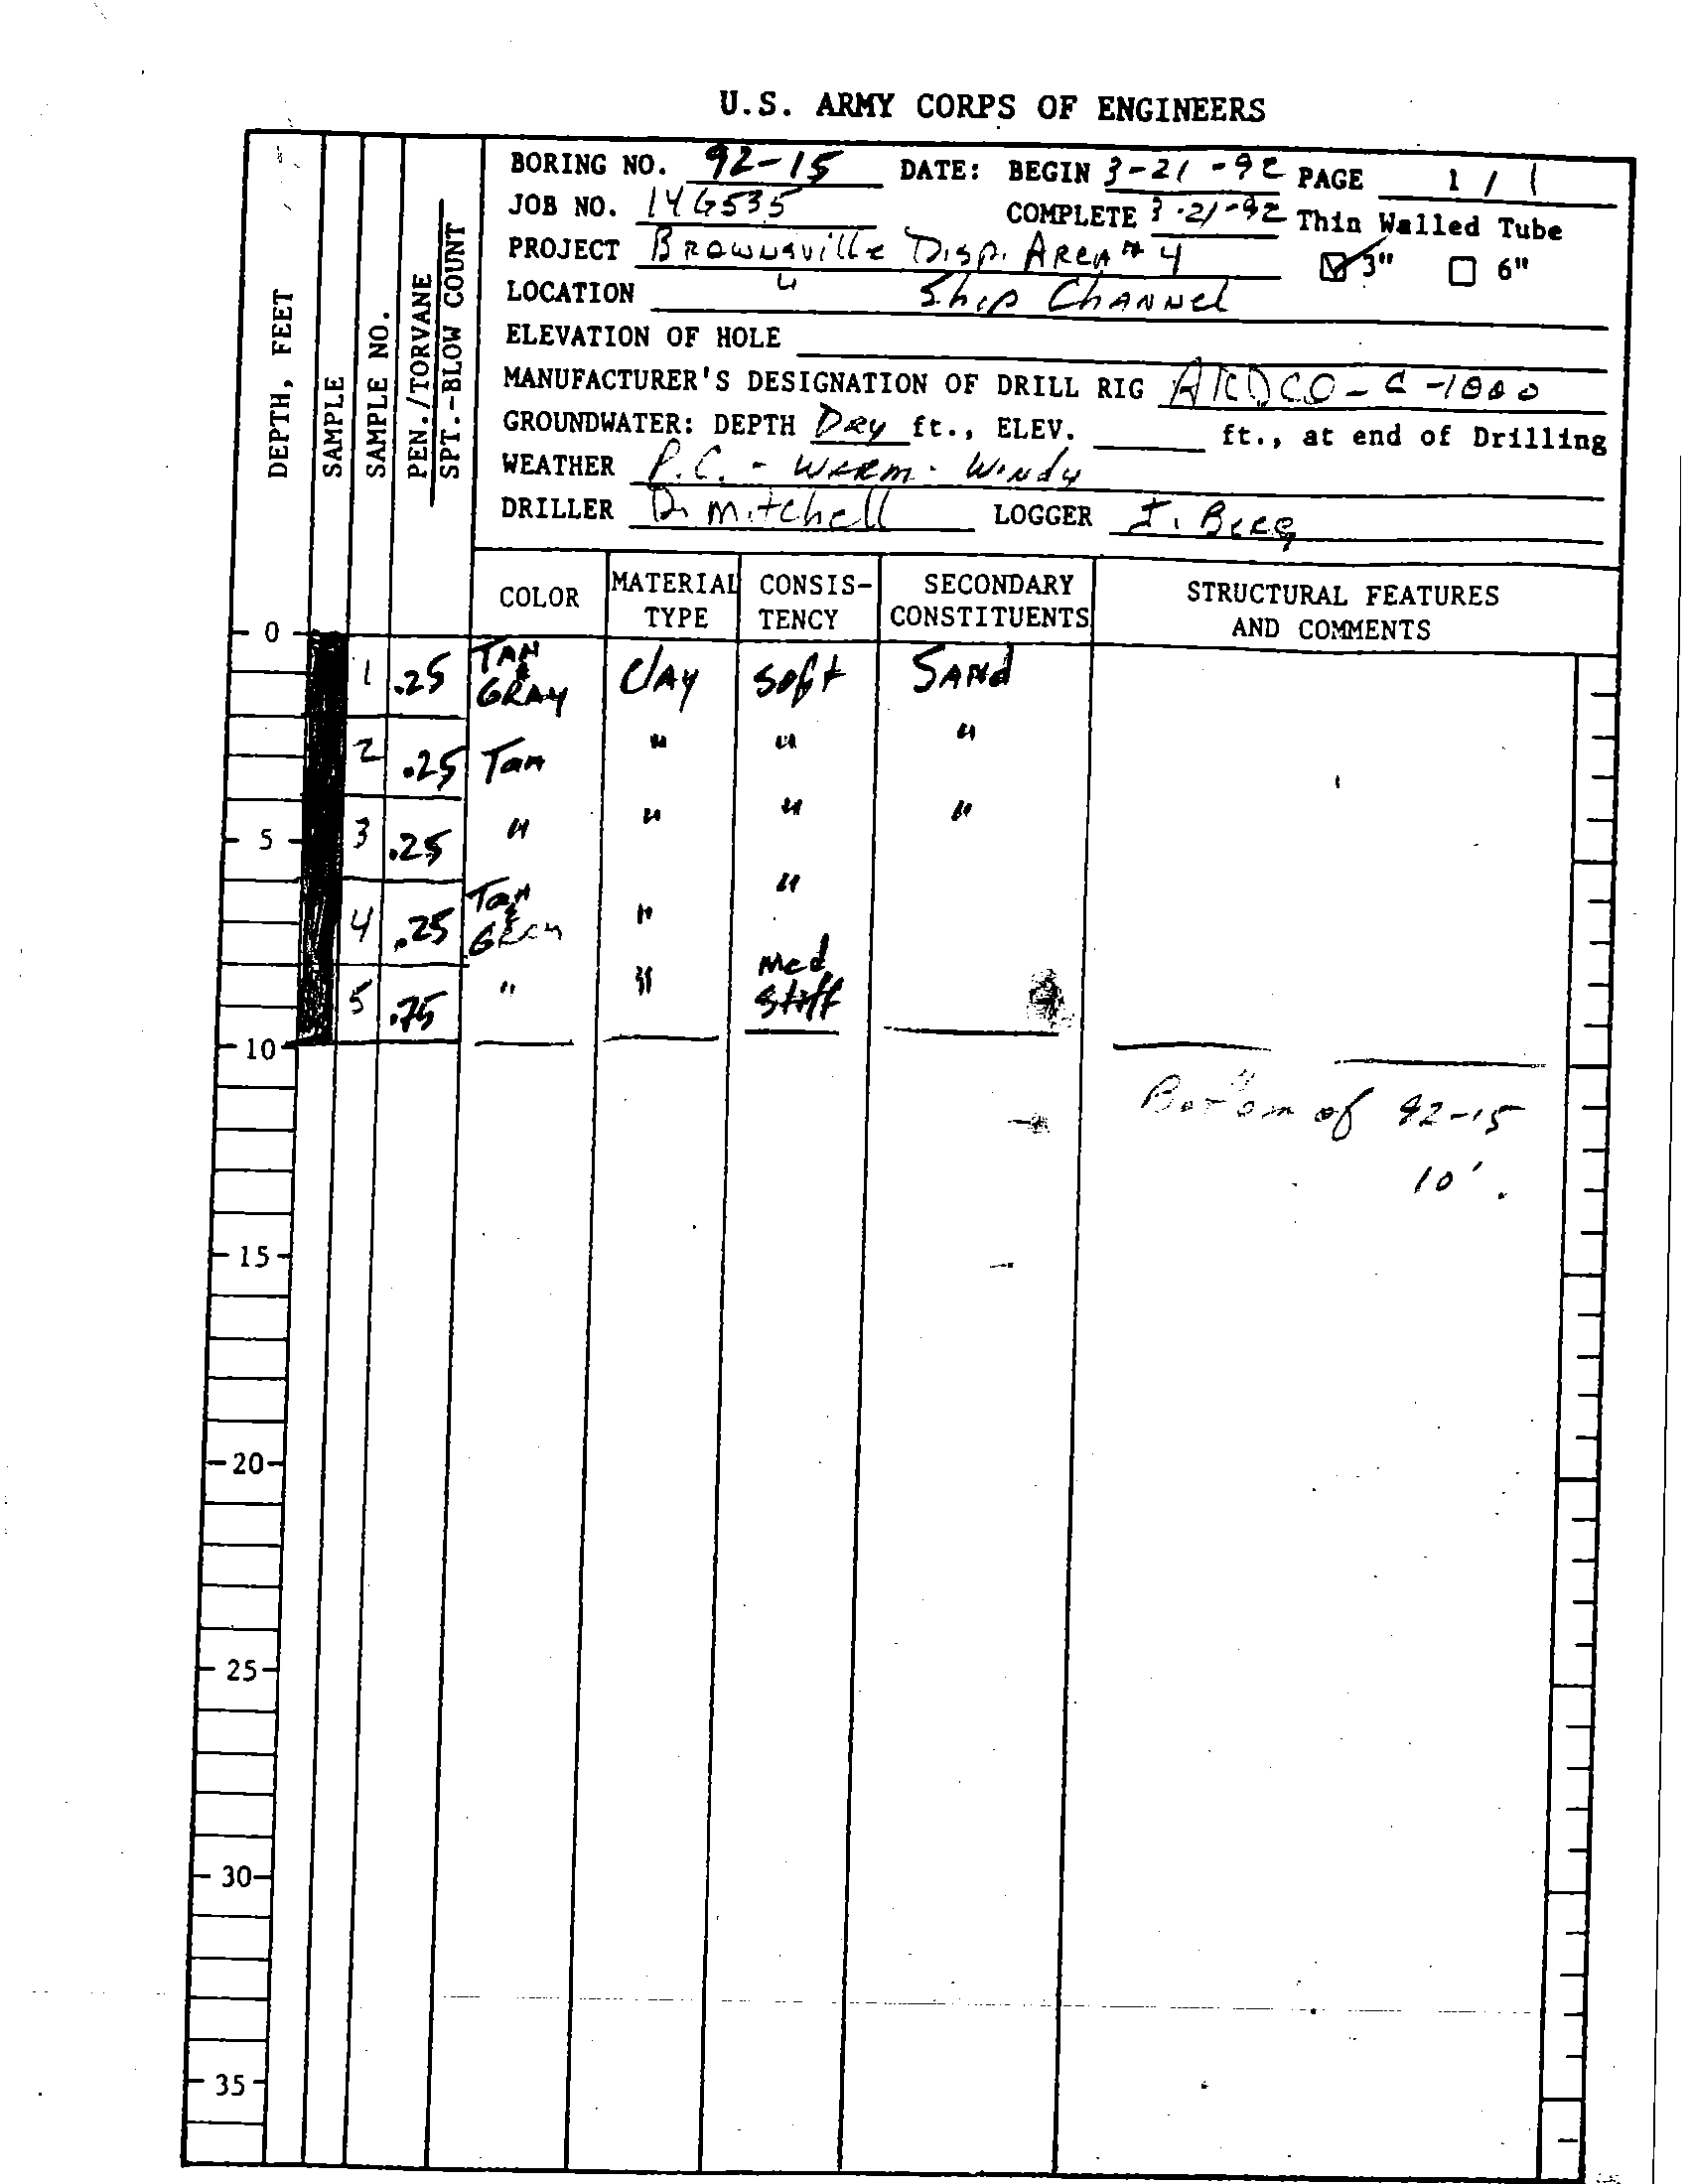 U.S. ARMY CORPS OF ENGINEERS
BORING NO. 92-15 DATE: BEGIN 3-21-92 PAGE 1 / 1
JOB NO. 14G535 COMPLETE 3-21-92 Thin Walled Tube
PROJECT Brownsville Disp. Area # 4 3" 6"
LOCATION " Ship Channel
ELEVATION OF HOLE
MANUFACTURER'S DESIGNATION OF DRILL RIG ARDCO-C-1000
GROUNDWATER: DEPTH Dry ft., ELEV. ft., at end of Drilling
WEATHER P.C. - Warm - Windy
DRILLER D. Mitchell LOGGER
DEPTH, FEET
SAMPLE
SAMPLE NO.
PEN./TORVANE
SPT.-BLOW COUNT
COLOR MATERIAL TYPE CONSIS-TENCY SECONDARY CONSTITUENTS STRUCTURAL FEATURES AND COMMENTS
0
1 .25 TAN & GRAY Clay soft Sand
2 .25 Tan " " "
5 3 .25 " " " "
4 .25 Tan & Gray " "
5 .75 " " Med stiff
10
Bottom of 92-15
10'.
15
20
25
30
35